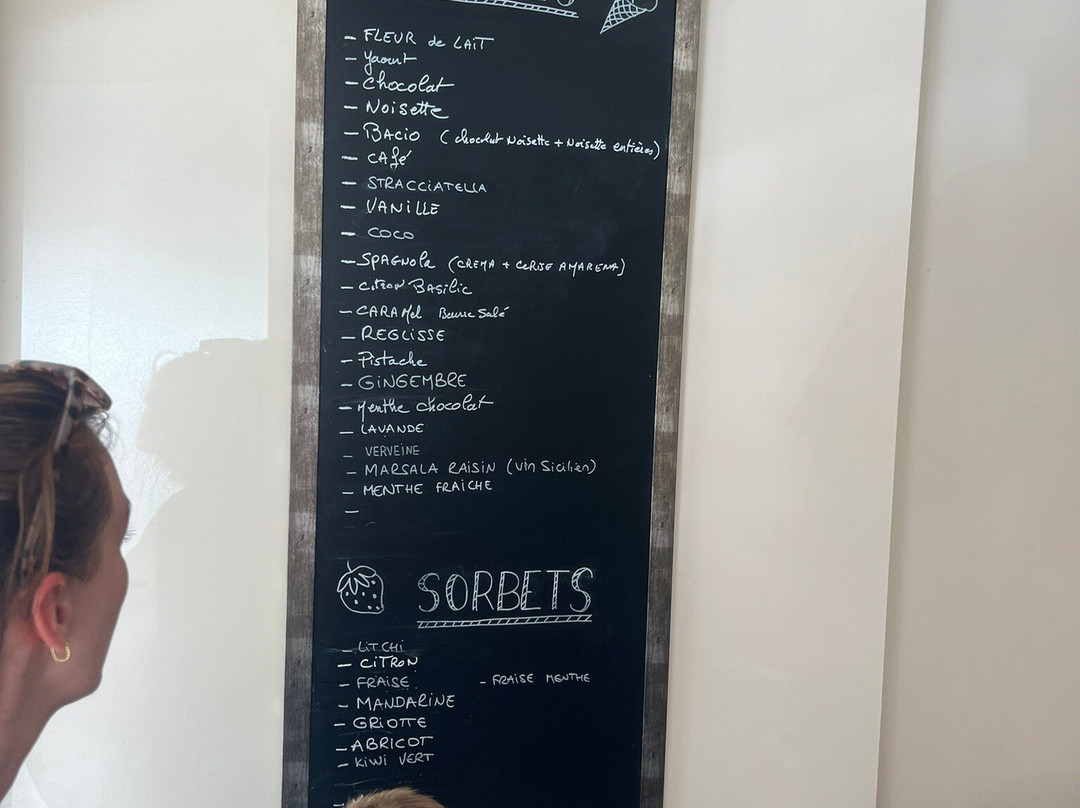 – FLEUR de LAiT
– Yaourt
– Chocolat
– Noisette
– BACiO (chocolat Noisette + Noisette entières)
– CAfé
– STRACCIATELLA
– VANiLLE
– COCO
– SPAGNOLA (CREMA + CERISE AMARENA)
– citron BASiLic
– CARAMel Beurre Salé
– REGLISSE
– Pistache
– GiNGEMBRE
– Menthe chocolat
– LAVANDE
– VERVEINE
– MARSALA RAISIN (vin Sicilien)
– MENTHE FRAICHE
–
SORBETS
– LITCHI
– CiTRON
– FRAISE – FRAISE MENTHE
– MANDARINE
– GRiOTTE
– ABRICOT
– KiWi VERT
–